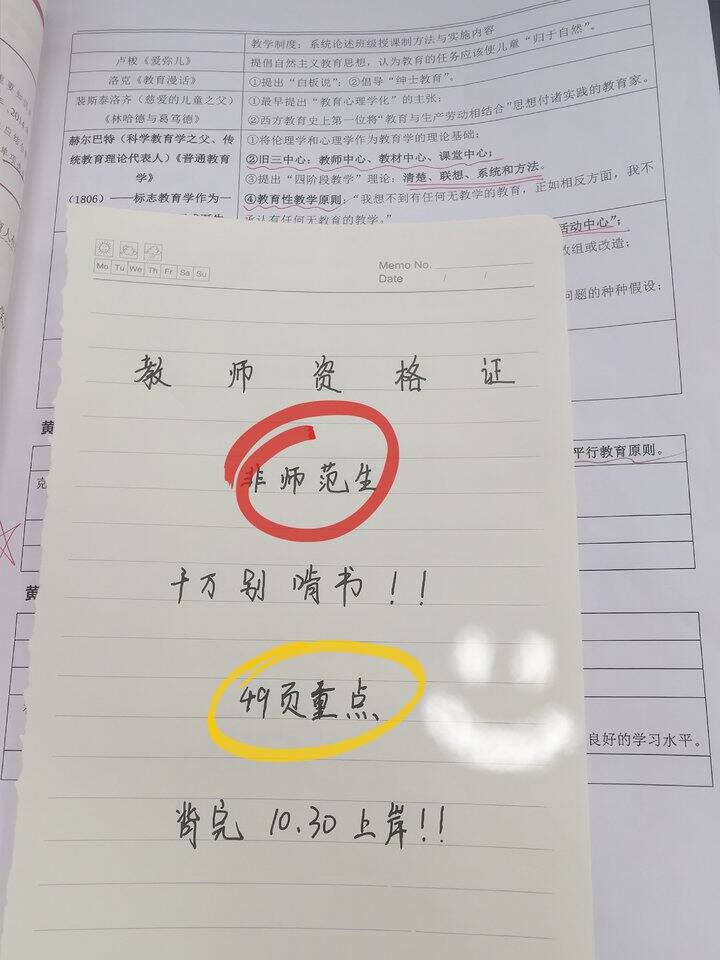 教学制度：系统论述班级授课制方法与实施内容
卢梭《爱弥儿》
提倡自然主义教育思想，认为教育的任务应该使儿童“归于自然”。
洛克《教育漫话》
①提出“白板说”；②倡导“绅士教育”。
裴斯泰洛齐（慈爱的儿童之父）
《林哈德与葛笃德》
①最早提出“教育心理学化”的主张；
②西方教育史上第一位将“教育与生产劳动相结合”思想付诸实践的教育家。
赫尔巴特（科学教育学之父、传
统教育理论代表人）《普通教育
学》
（1806）——标志教育学作为一
①将伦理学和心理学作为教育学的理论基础；
②旧三中心：教师中心、教材中心、课堂中心；
③提出“四阶段教学”理论：清楚、联想、系统和方法。
④教育性教学原则：“我想不到有任何无教学的教育，正如相反方面，我不
承认有任何无教育的教学。”
活动中心”；
数组或改造；
问题的种种假设；
Mo Tu We Th Fr Sa Su
Memo No.
Date / /
教师资格证
非师范生
千万别啃书！！
49页重点
背完 10.30上岸!!
黄
平行教育原则。
克
黄
良好的学习水平。